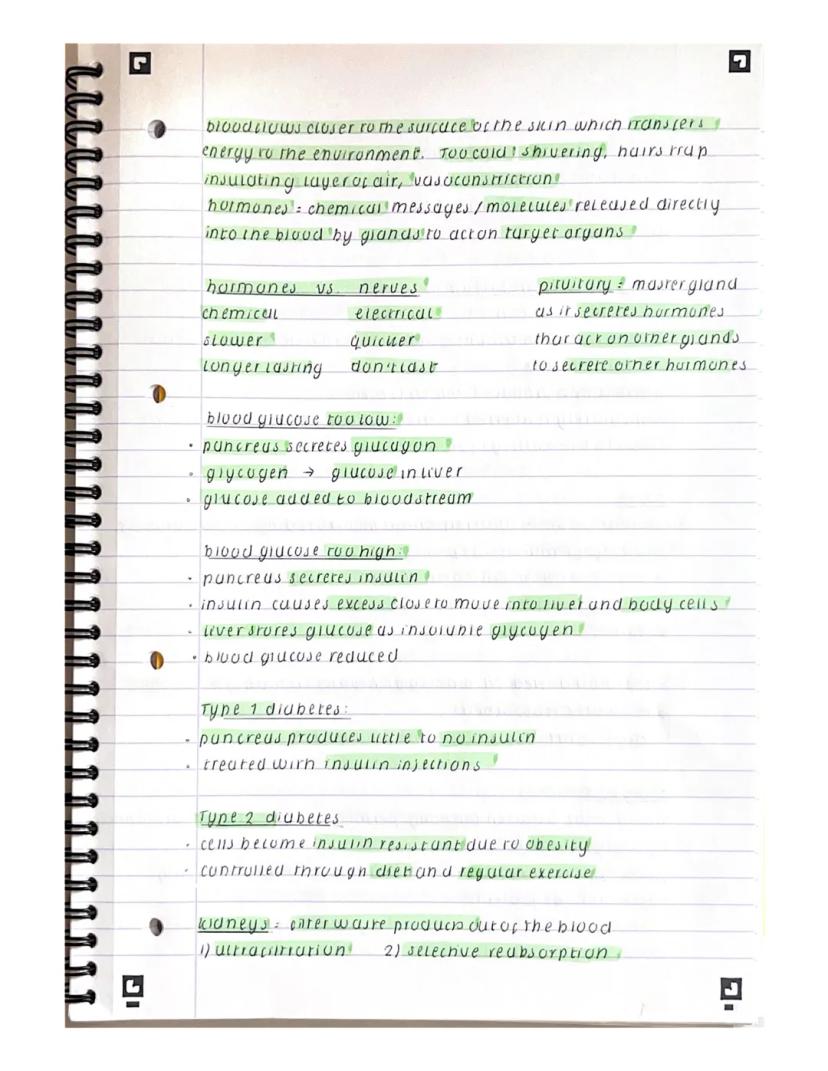 blood flows closer to the surface of the skin which transfers
energy to the environment. Too cold: shivering, hairs trap
insulating layer of air, vasoconstriction
hormones = chemical messages / molecules released directly
into the blood by glands to act on target organs
hormones vs. nerves
chemical electrical
slower quicker
longer lasting don't last
pituitary = master gland
as it secretes hormones
that act on other glands
to secrete other hormones
blood glucose too low:
• pancreas secretes glucagon
• glycogen → glucose in liver
• glucose added to bloodstream
blood glucose too high:
• pancreas secretes insulin
• insulin causes excess closeto move into liver and body cells
• liver stores glucose as insoluble glycogen
• blood glucose reduced
Type 1 diabetes:
• pancreas produces little to no insulin
• treated with insulin injections
Type 2 diabetes
• cells become insulin resistant due to obesity
• controlled through diet and regular exercise
kidneys = filter waste products out of the blood
1) ultrafiltration 2) selective reabsorption